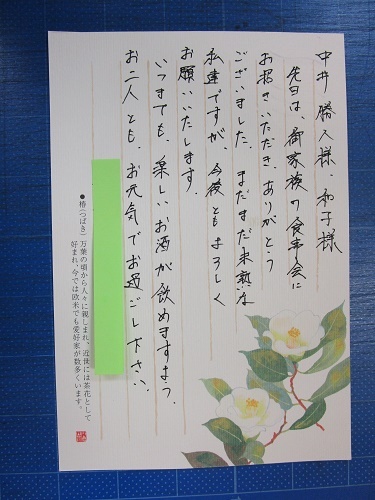 中井 勝人様、和子様
先日は、御家族の食事会に
お招きいただき、ありがとう
ございました。まだまだ未熟な
私達ですが、今後ともよろしく
お願いいたします。
いつまでも、楽しいお酒が飲めますよう。
お二人とも、お元気でお過ごし下さい。
●椿(つばき) 万葉の頃から人々に親しまれ、近世には茶花として
好まれ、今では欧米でも愛好家が数多くいます。